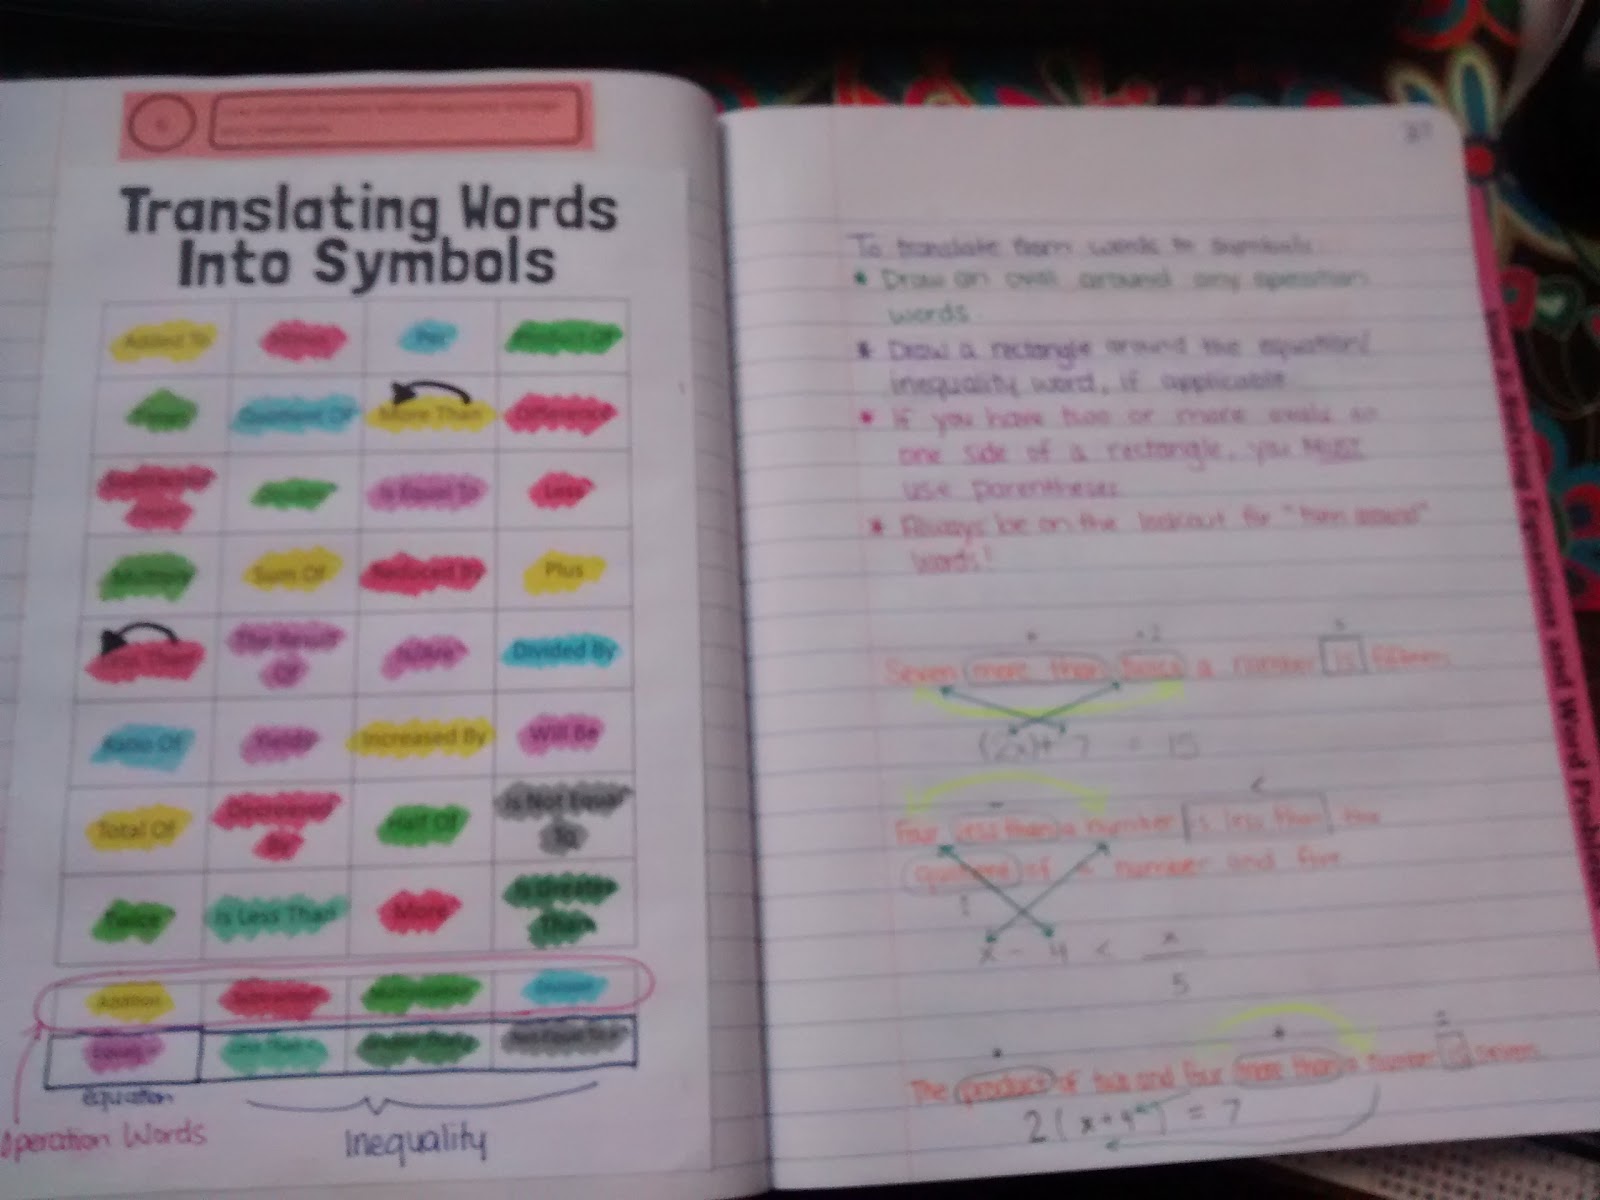 Translating Words
Into Symbols
Added To
Per
Product Of
Quotient Of
More Than
Difference
Is Equal To
Less
Multiply
Sum Of
Reduced By
Plus
Less Than
The Result
Of
Divided By
Ratio Of
Yields
Increased By
Will Be
Total Of
Decreased
By
Half Of
Is Not Equal
To
Twice
Is Less Than
More
Is Greater
Than
Addition
Subtraction
Multiplication
Division
Equals =
Less Than <
equation
Operation Words
Inequality
37
To translate from words to symbols
* Draw an oval around any operation
words.
* Draw a rectangle around the equation/
inequality word, if applicable.
* If you have two or more ovals on
one side of a rectangle, you MUST
use parentheses
* Always be on the lookout for "turn around"
words!
Seven more than twice a number is fifteen
(2x)+ 7 = 15
- <
Four less than a number is less than the
quotient of a number and five
x - 4 < x
5
The product of two and four more than a number is seven
2(x+4) = 7
Solving Equations and Word Problems